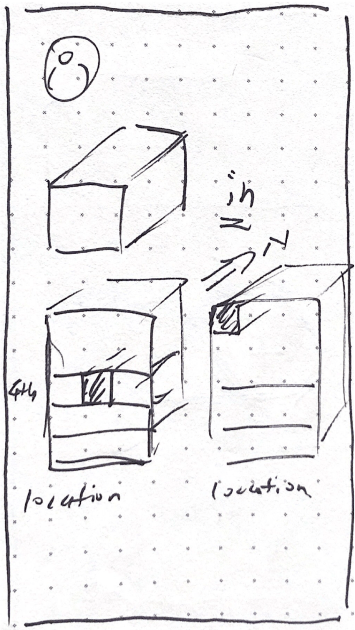 in
4th
location
location